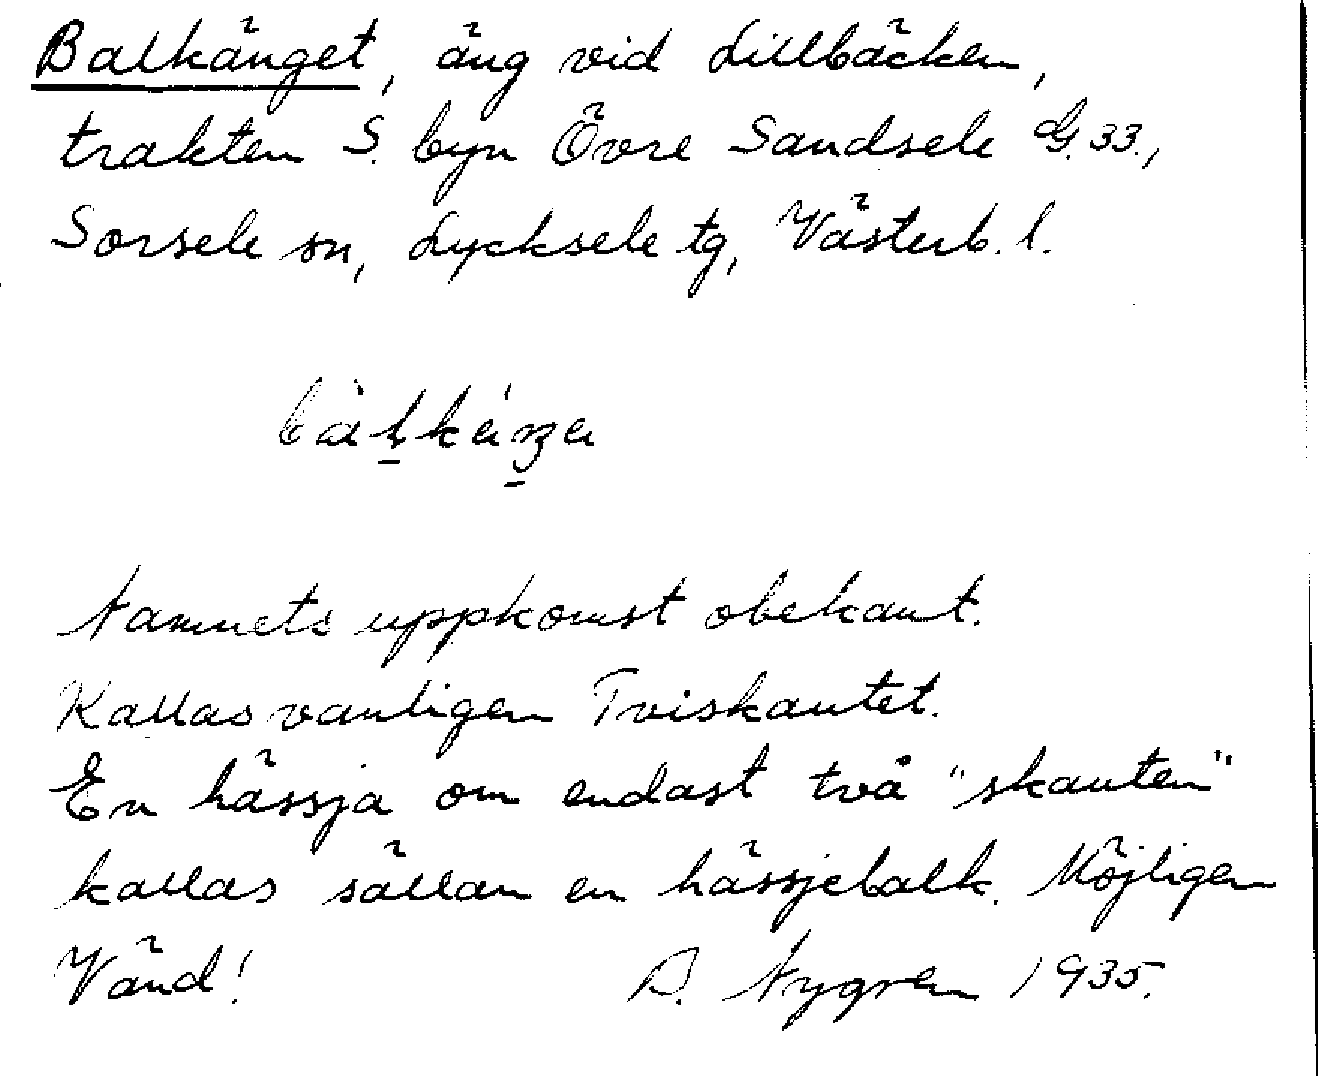 Balkänget, äng vid Lillbäcken,
trakten S. byn Övre Sandsele Lg. 33.,
Sorsele sn, Lycksele tg, Västerb. l.
Namnets uppkomst obekant.
Kallas vanligen Tviskautet.
En hässja om endast två "skauten"
kallas sällan en hässjebalk. Möjligen
Vänd! A. Nygren 1935.